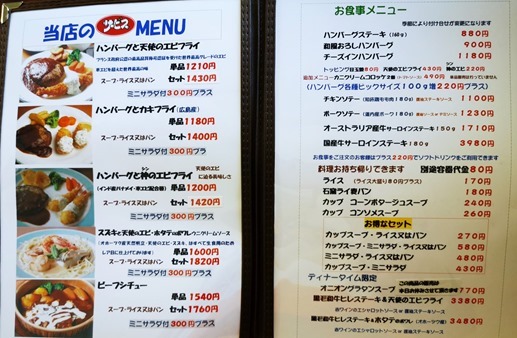 当店の サービス MENU
ハンバーグと天使のエビフライ
単品1210円
スープ・ライス又はパン セット1430円
ミニサラダ付300円プラス
ハンバーグとカキフライ(広島産)
単品1180円
スープ・ライス又はパン セット1400円
ミニサラダ付 300円プラス
ハンバーグと神のエビフライ
シン
天使のエビ
に迫る美味しさ
単品1200円
スープ・ライス又はパン セット1420円
ミニサラダ付 300円プラス
単品1600円
スープ・ライス又はパン セット1820円
ミニサラダ付300円プラス
ビーフシチュー
単品 1540円
スープ・ライス又はパン セット1760円
ミニサラダ付 300円プラス
お食事メニュー
季節により付け合せが変更になります
ハンバーグステーキ(160g) 880円
和風おろしハンバーグ 900円
チーズインハンバーグ 1180円
追加メニューカニクリームコロッケ2個 430円
(ハンバーグ各種ビックサイズ100g増220円プラス)
チキンソテー 1100円
ポークソテー 1230円
オーストラリア産牛サーロインステーキ150g 1710円
国産牛サーロインステーキ180g 3980円
お食事をご注文のお客様はプラス220円でソフトドリンクをご利用できます
料理お持ち帰りできます 別途容器代金80円
ライス (ライス大盛り80円プラス) 170円
石窯ライ麦パン 180円
カップ コーンポタージュスープ 240円
カップ コンソメスープ 260円
お得なセット
カップスープ・ライス又はパン 270円
カップスープ・ミニサラダ・ライス又はパン 580円
ミニサラダ・ライス又はパン 480円
カップスープ・ミニサラダ 430円
ディナータイム限定
オニオングラタンスープ 770円
黒毛和牛ヒレステーキ&天使のエビフライ 3380円
赤ワインのエシャロットソース or 醤油ステーキソース
3480円
赤ワインのエシャロットソース or 醤油ステーキソース